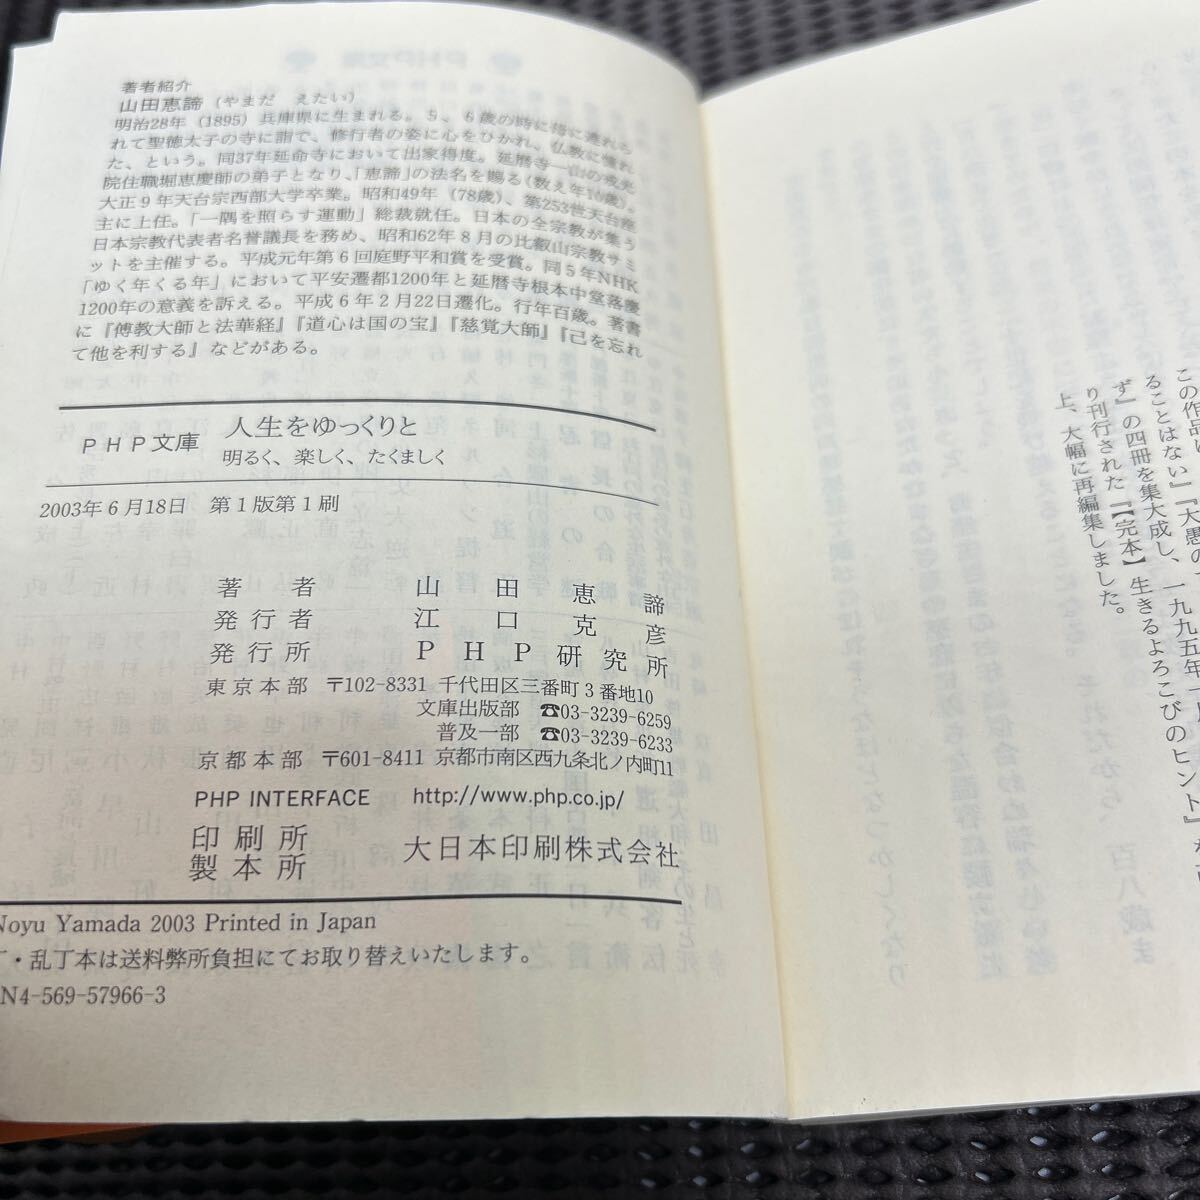 著者紹介
山田恵諦(やまだ えたい)
明治28年(1895)兵庫県に生まれる。5、6歳の時に母に連れら
れて聖徳太子の寺に詣で、修行者の姿に心をひかれ、仏教に憧れ
た、という。同37年延命寺において出家得度。延暦寺一山の戒光
院住職堀恵慶師の弟子となり、「恵諦」の法名を賜る(数え年16歳)。
大正9年天台宗西部大学卒業。昭和49年(78歳)、第253世天台座
主に上任。「一隅を照らす運動」総裁就任。日本の全宗教が集う
日本宗教代表者名誉議長を務め、昭和62年8月の比叡山宗教サミ
ットを主催する。平成元年第6回庭野平和賞を受賞。同5年NHK
「ゆく年くる年」において平安遷都1200年と延暦寺根本中堂落慶
1200年の意義を訴える。平成6年2月22日遷化。行年百歳。著書
に『傳教大師と法華経』『道心は国の宝』『慈覚大師』『己を忘れ
て他を利する』などがある。
PHP文庫 人生をゆっくりと
明るく、楽しく、たくましく
2003年6月18日 第1版第1刷
著者 山田恵諦
発行者 江口克彦
発行所 PHP研究所
東京本部 〒102-8331 千代田区三番町3番地10
文庫出版部 ☎03-3239-6259
普及一部 ☎03-3239-6233
京都本部 〒601-8411 京都市南区西九条北ノ内町11
PHP INTERFACE http://www.php.co.jp/
印刷所
製本所 大日本印刷株式会社
Noyu Yamada 2003 Printed in Japan
丁・乱丁本は送料弊所負担にてお取り替えいたします。
N4-569-57966-3
この作品は
ることはない』『大愚の
ず』の四冊を集大成し、一九九五年一
り刊行された『【完本】生きるよろこびのヒント』
上、大幅に再編集しました。